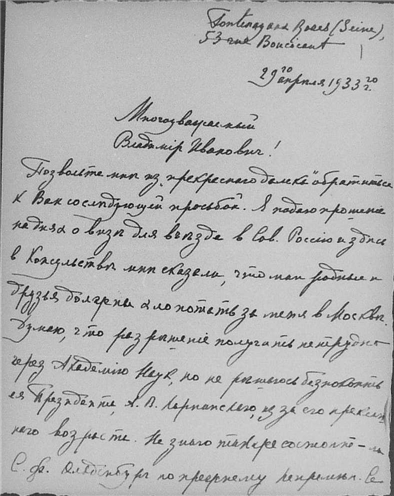 Fontenay aux Roses (Seine),
53 rue Boucicaut
29го апреля 1933го г.
Многоуважаемый
Владимір Иванович!
Позвольте мнѣ из "прекраснаго далека" обратиться
к Вам со слѣдующей просьбой. Я подаю прошеніе
на днях о визѣ для въезда в Сов. Россію и здѣсь
в Консульствѣ мнѣ сказали, что мои родные и
друзья должны хлопотать за меня в Москвѣ.
Думаю, что разрѣшеніе получить нетрудно
через Академію Наук, но не рѣшаюсь безпокоить
ея Президента, А. П. Карпинскаго, из за его преклон-
наго возраста. Не знаю также состоит-ли
С. Ф. Ольденбург по прежнему непремѣн. Се